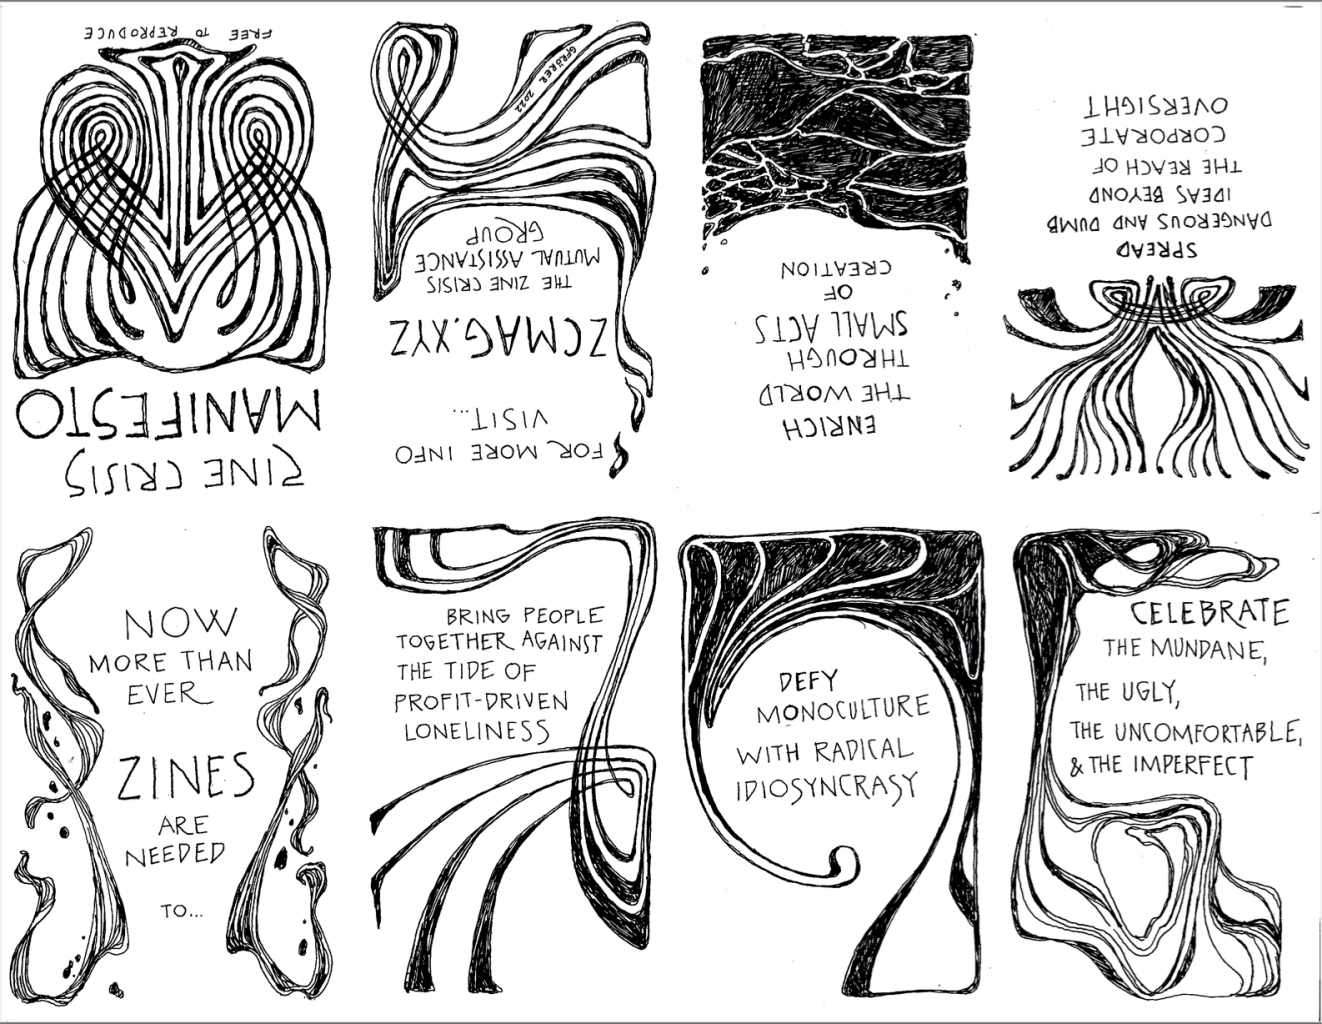 FREE TO REPRODUCE
ZINE CRISIS
MANIFESTO
NOW
MORE THAN
EVER
ZINES
ARE
NEEDED
TO...
BRING PEOPLE
TOGETHER AGAINST
THE TIDE OF
PROFIT-DRIVEN
LONELINESS
DEFY
MONOCULTURE
WITH RADICAL
IDIOSYNCRASY
CELEBRATE
THE MUNDANE,
THE UGLY,
THE UNCOMFORTABLE,
& THE IMPERFECT
SPREAD
DANGEROUS AND DUMB
IDEAS BEYOND
THE REACH OF
CORPORATE
OVERSIGHT
ENRICH
THE WORLD
THROUGH
SMALL ACTS
OF
CREATION
FOR MORE INFO
VISIT...
ZCMAG.XYZ
THE ZINE CRISIS
MUTUAL ASSISTANCE
GROUP
GFRÖRER 2022